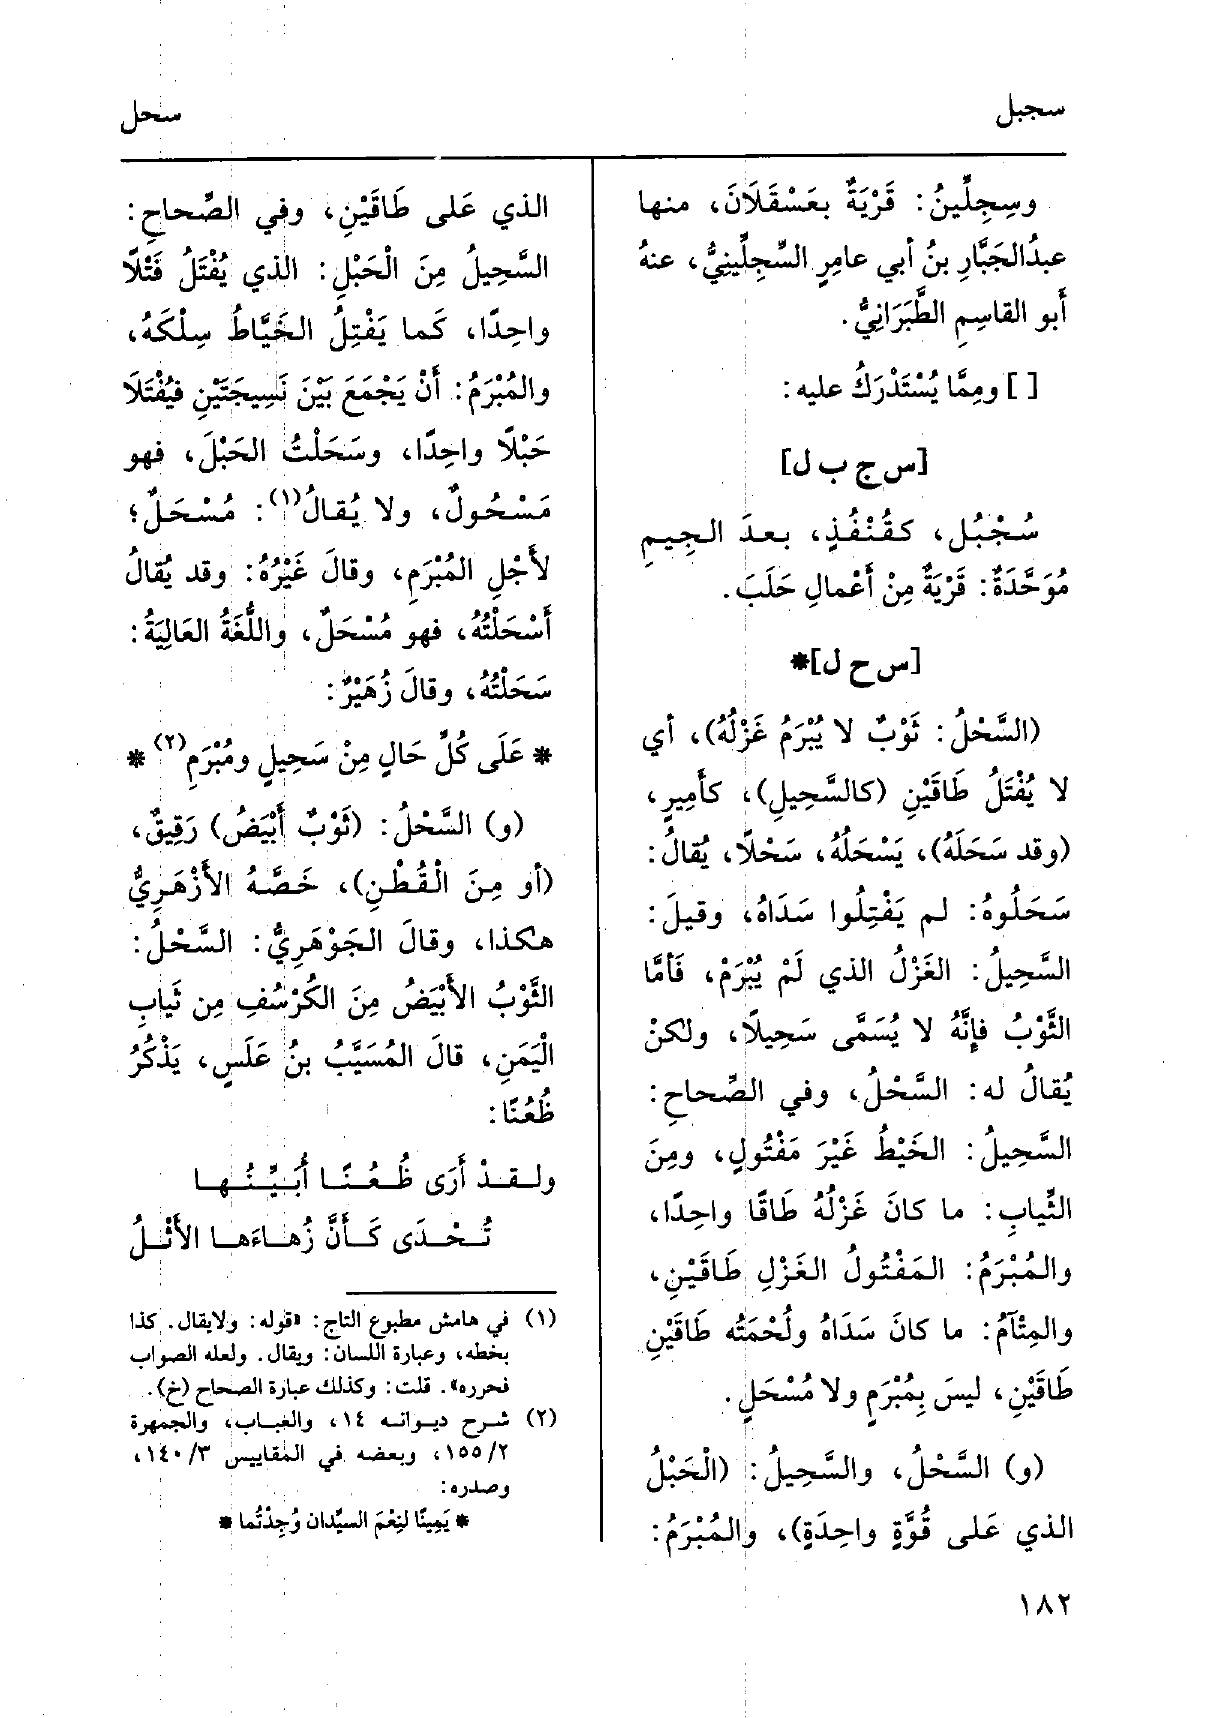 سجبل
سحل
وسِجِلِّينُ: قَرْيَةٌ بعَسْقَلَانَ، منها
عبدُالجَبَّارِ بنُ أبي عامِرٍ السِّجِلِّينِيُّ، عنهُ
أَبو القاسِمِ الطَّبَرَانِيُّ.
[ ] ومِمَّا يُسْتَدْرَكُ عليه:
[س ج ب ل]
سُجْبُل، كقُنْفُذٍ، بعدَ الجِيمِ
مُوَحَّدَةٌ: قَرْيَةٌ مِنْ أَعْمالِ حَلَبَ.
[س ح ل]*
(السَّحْلُ: ثَوْبٌ لا يُبْرَمُ غَزْلُهُ)، أي
لا يُفْتَلُ طَاقَيْنِ (كالسَّحِيلِ)، كأَمِيرٍ،
(وقد سَحَلَهُ)، يَسْحَلُهُ، سَحْلًا، يُقالُ:
سَحَلُوهُ: لم يَفْتِلُوا سَدَاهُ، وقيلَ:
السَّحِيلُ: الغَزْلُ الذي لَمْ يُبْرَمْ، فَأمَّا
الثَّوْبُ فإِنَّهُ لا يُسَمَّى سَحِيلًا، ولكنْ
يُقالُ له: السَّحْلُ، وفي الصِّحاحِ:
السَّحِيلُ: الخَيْطُ غَيْرَ مَفْتُولٍ، ومِنَ
الثِّيابِ: ما كانَ غَزْلُهُ طَاقًا واحِدًا،
والمُبْرَمُ: المَفْتُولُ الغَزْلِ طَاقَيْنِ،
والمِتْآمُ: ما كانَ سَدَاهُ ولُحْمَتُه طَاقَيْنِ
طَاقَيْنِ، ليسَ بِمُبْرَمٍ ولا مُسْحَلٍ.
(و) السَّحْلُ، والسَّحِيلُ: (الْحَبْلُ
الذي عَلى قُوَّةٍ واحِدَةٍ)، والمُبْرَمُ:
الذي عَلى طَاقَيْنِ، وفي الصِّحاحِ:
السَّحِيلُ مِنَ الْحَبْلِ: الذي يُفْتَلُ فَتْلًا
واحِدًا، كَما يَفْتِلُ الخَيَّاطُ سِلْكَهُ،
والمُبْرَمُ: أَنْ يَجْمَعَ بَيْنَ نَسِيجَتَيْنِ فيُفْتَلَا
حَبْلًا واحِدًا، وسَحَلْتُ الحَبْلَ، فهو
مَسْحُولٌ، ولا يُقالُ(١): مُسْحَلٌ؛
لأَجْلِ المُبْرَمِ، وقالَ غَيْرُهُ: وقد يُقالُ
أَسْحَلْتُهُ، فهو مُسْحَلٌ، واللُّغَةُ العَالِيَةُ:
سَحَلْتُهُ، وقالَ زُهَيْرٌ:
* عَلَى كُلِّ حَالٍ مِنْ سَحِيلٍ ومُبْرَمِ(٢) *
(و) السَّحْلُ: (ثَوْبٌ أَبْيَضُ) رَقِيقٌ،
(أو مِنَ الْقُطْنِ)، خَصَّهُ الأَزْهَرِيُّ
هكذا، وقالَ الجَوْهَرِيُّ: السَّحْلُ:
الثَّوْبُ الأَبْيَضُ مِنَ الكُرْسُفِ مِن ثَيابِ
الْيَمَنِ، قالَ المُسَيَّبُ بنُ عَلَسٍ، يَذْكُرُ
ظُعُنًا:
ولـقـدْ أَرَى ظُـعُـنًـا أُبَيِّـنُـهـا
تُـحْـدَى كَـأَنَّ زُهـاءَهـا الأَثْـلُ
(١) في هامش مطبوع التاج: «قوله: ولايقال. كذا
بخطه، وعبارة اللسان: ويقال. ولعله الصواب
فحرره». قلت: وكذلك عبارة الصحاح (خ).
(٢) شرح ديوانه ١٤، والعباب، والجمهرة
١٥٥/٢، وبعضه في المقاييس ١٤٠/٣،
وصدره:
* يَمِينًا لنِعْمَ السيِّدان وُجِدْتُما *
١٨٢